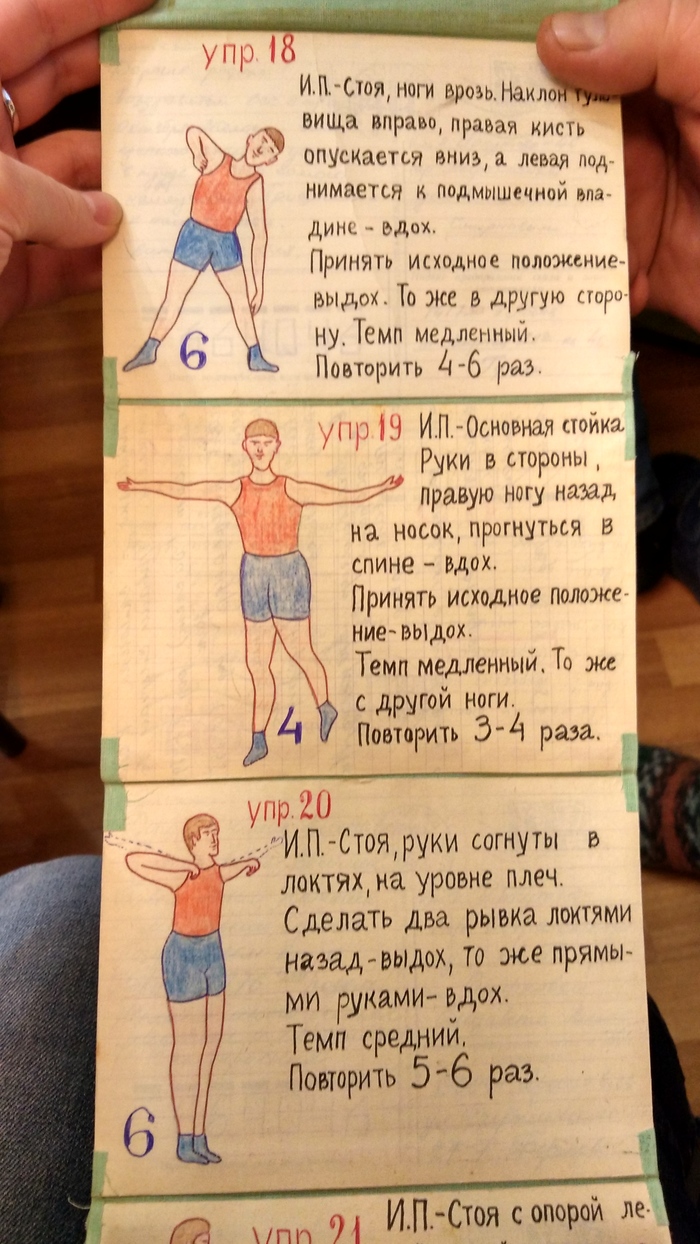 упр. 18
И.П.-Стоя, ноги врозь. Наклон туло-
вища вправо, правая кисть
опускается вниз, а левая под-
нимается к подмышечной впа-
дине - вдох.
Принять исходное положение-
выдох. То же в другую сторо-
ну. Темп медленный.
Повторить 4-6 раз.
6
упр. 19
И.П.-Основная стойка
Руки в стороны,
правую ногу назад
на носок, прогнуться в
спине - вдох.
Принять исходное положе-
ние-выдох.
Темп медленный. То же
с другой ноги.
Повторить 3-4 раза.
4
упр. 20
И.П.-Стоя, руки согнуты в
локтях, на уровне плеч.
Сделать два рывка локтями
назад-выдох, то же прямы-
ми руками- вдох.
Темп средний.
Повторить 5-6 раз.
6
упр. 21
И.П.-Стоя с опорой ле-